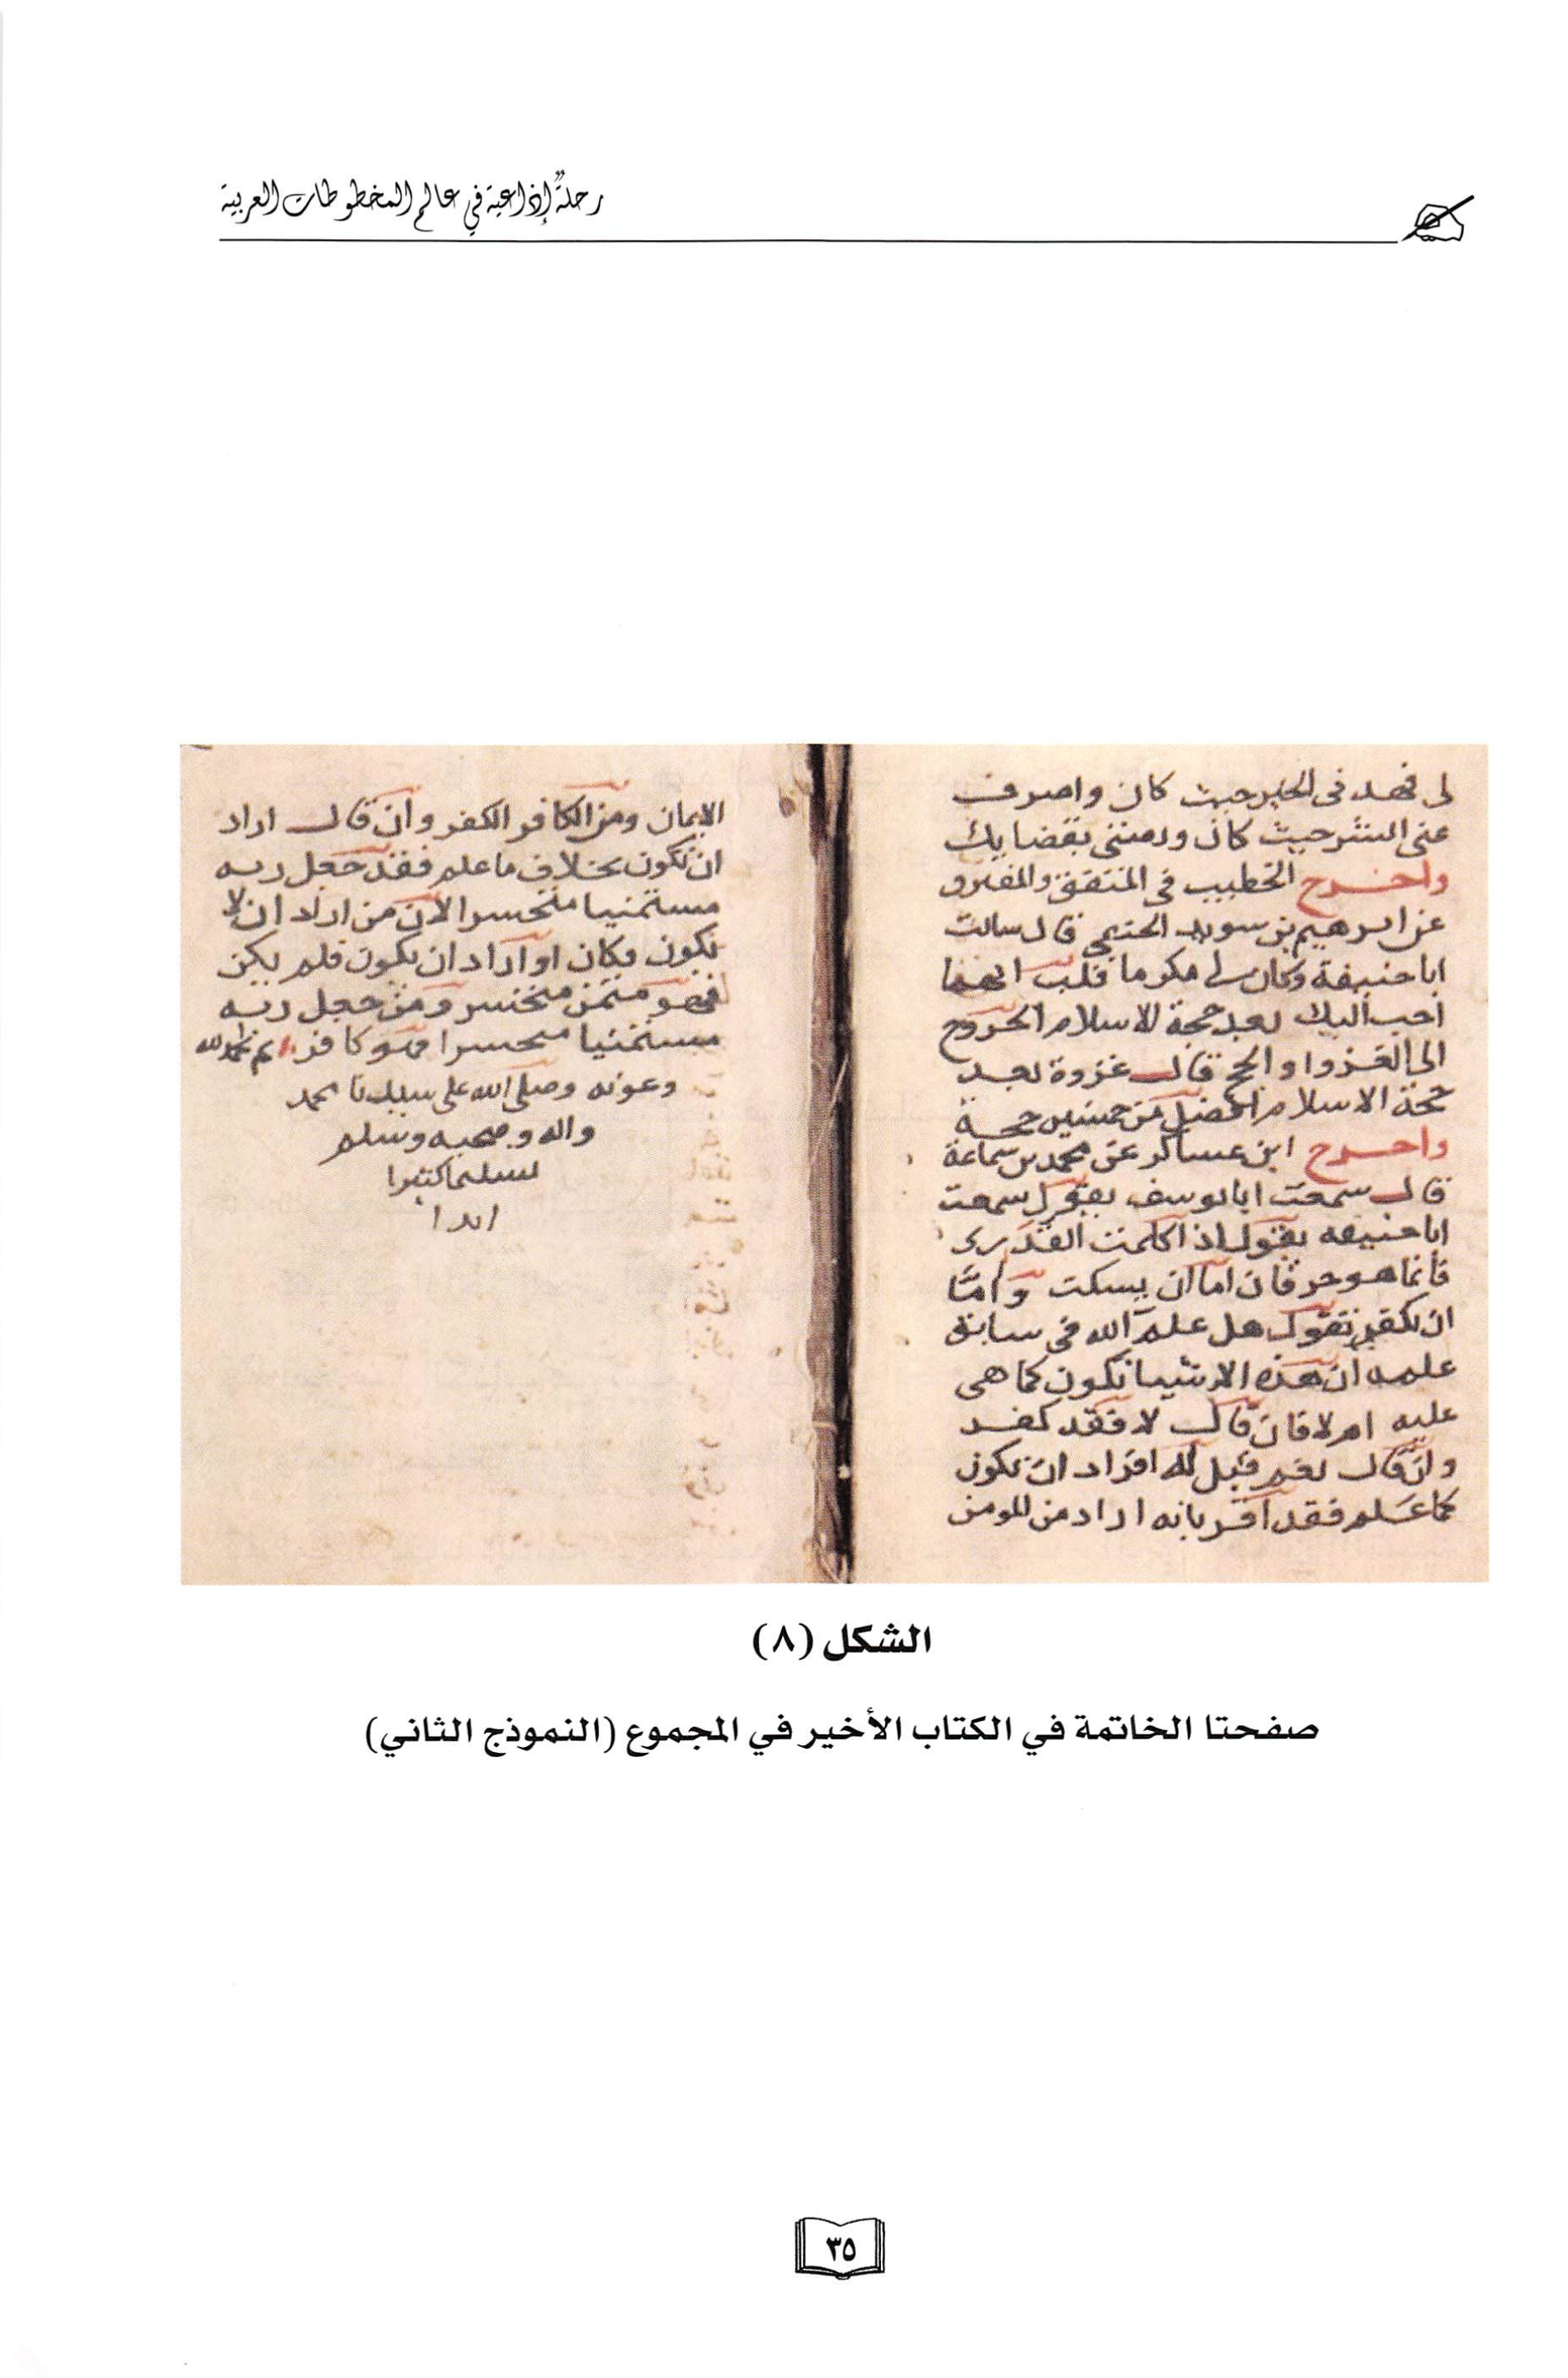 رحلةٌ إذاعية في عالم المخطوطات العربية
لى فهد فى الخير حيث كان واصرف
عنى الشر حيث كان ورضنى بقضايك
واخرج الخطيب فى المتفق والمفترق
عن ابرهيم بن سويد الحنفى قال سالت
اباحنيفة وكان لى مكرما قلت ايهما
احب اليك بعد حجة الاسلام الخروج
الى الغزو او الحج قال غزوة بعد
حجة الاسلام افضل من خمسين حجة
واخرج ابن عساكر عن محمد بن سماعة
قال سمعت ابا يوسف يقول سمعت
ابا حنيفه يقول اذا كلمت القدرى
فانما هو حرفان اما ان يسكت واما
ان يكفر تقول هل علم الله فى سابق
علمه ان هذه الاشيا تكون كما هى
عليه ام لا فان قال لا فقد كفر
وان قال نعم قيل له افراد ان تكون
كما علم فقد اقر بانه اراد من المومن
الايمان ومن الكافر الكفر وان قال اراد
ان تكون بخلاف ما علم فقد جعل ربه
متمنيا متحسرا لان من اراد ان لا
يكون فكان او اراد ان يكون فلم يكن
فهو متمن متحسر ومن جعل ربه
متمنيا متحسرا فهو كافر تم بحمد الله
وعونه وصلى الله على سيدنا محمد
واله وصحبه وسلم
تسليما كثيرا
ابدا
الشكل (٨)
صفحتا الخاتمة في الكتاب الأخير في المجموع (النموذج الثاني)
٣٥